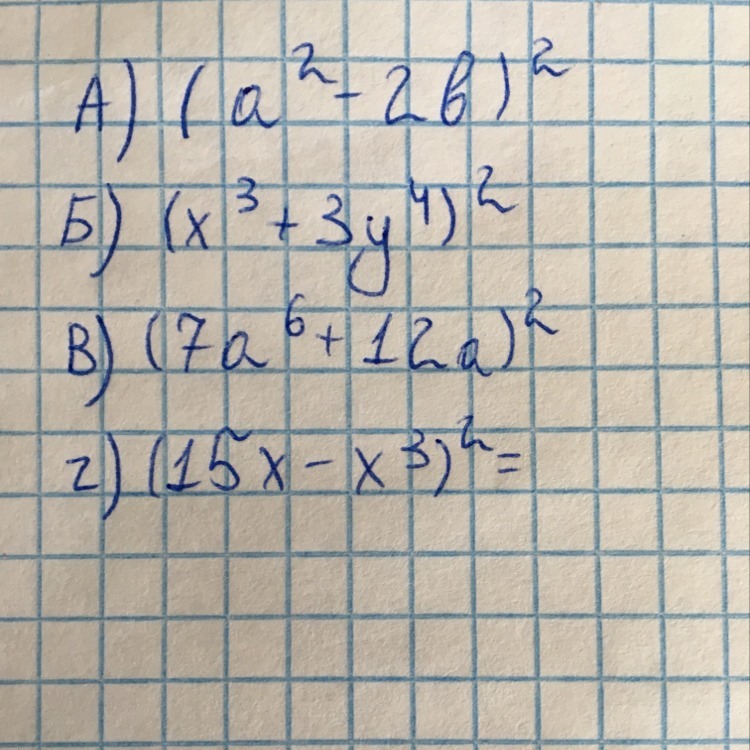 А) (a² - 2b)²
Б) (x³ + 3y⁴)²
В) (7a⁶ + 12a)²
г) (15x - x³)² =